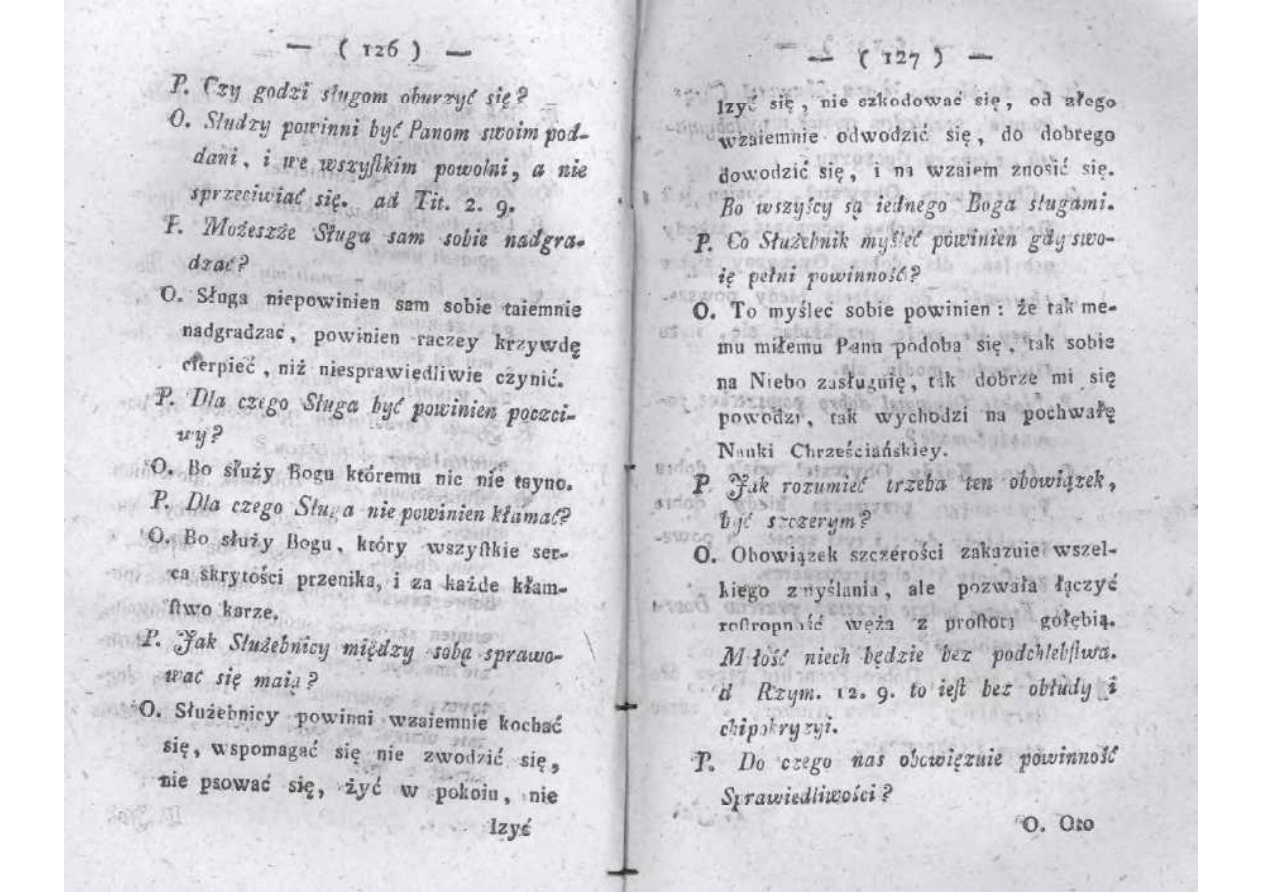 — ( 126 ) —
P. Czy godzi sługom oburzyć się?
O. Słudzy powinni być Panom swoim pod-
dani, i we wszyſtkim powolni, a nie
sprzeciwiać się. ad Tit. 2. 9.
P. Możeszże Sługa sam sobie nadgra-
dzać?
O. Sługa niepowinien sam sobie taiemnie
nadgradzać, powinien raczey krzywdę
cierpieć, niż niesprawiedliwie czynić.
P. Dla czego Sługa być powinien poczci-
wy?
O. Bo służy Bogu któremu nic nie tayno.
P. Dla czego Sługa nie powinien kłamać?
O. Bo służy Bogu, który wszyſtkie ser-
ca skrytości przenika, i za każde kłam-
ſtwo karze.
P. Jak Służebnicy między sobą sprawo-
wać się maią?
O. Służebnicy powinni wzaiemnie kochać
się, wspomagać się nie zwodzić się,
nie psować się, żyć w pokoiu, nie
lzyć
— ( 127 ) —
lzyć się, nie szkodować się, od złego
wzaiemnie odwodzić się, do dobrego
dowodzić się, i na wzaiem znosić się.
Bo wszyścy są iednego Boga sługami.
P. Co Służebnik myśleć powinien gdy swo-
ię pełni powinność?
O. To myśleć sobie powinien: że tak me-
mu miłemu Panu podoba się, tak sobie
na Niebo zasługuię, tak dobrze mi się
powodzi, tak wychodzi na pochwałę
Nauki Chrześciańskiey.
P. Jak rozumieć trzeba ten obowiązek,
być szczerym?
O. Obowiązek szczerości zakazuie wszel-
kiego zmyślania, ale pozwala łączyć
roſtropność węża z proſtotą gołębią.
Miłość niech będzie bez podchlebſtwa.
d Rzym. 12. 9. to ieſt bez obłudy i
chipokryzyi.
P. Do czego nas obowięzuie powinność
Sprawiedliwości?
O. Oto